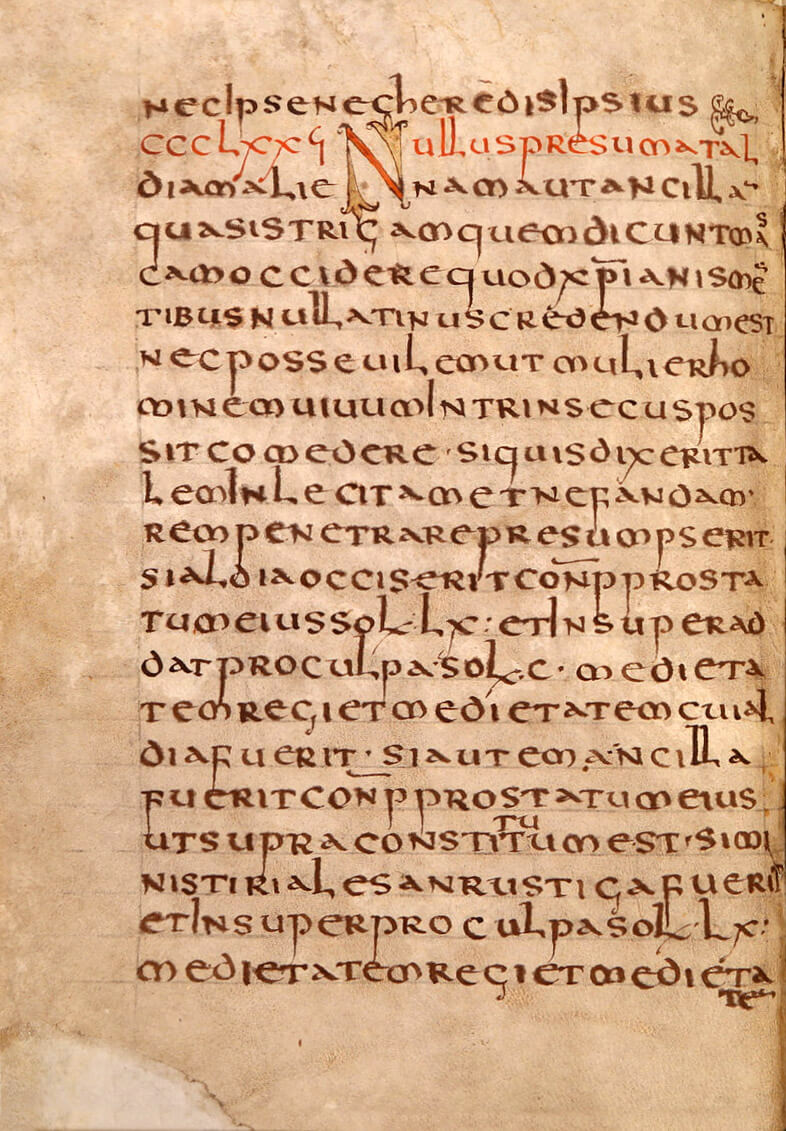 necipsenecheredisipsius
cccLxxϛ Nulluspresumatal
diamalienamautancilla
quasistrigamquemdicuntmas
camoccidere quodxp̅ianisme
tibusnullatinuscredendumest
necposseuilemutmulierho
minemuiuumintrinsecuspos
sitcomedere·siquisdixeritta
leminlecitametnefandam·
rempenetrarepresumpserit
sialdiaocciseritcon̅pprosta
tumeiussol·lx:etinsuperad
datproculpa·sol·c·medieta
temregietmedietatemcuiual
diafuerit·siautemancilla
fueritcon̅pprostatumeius
utsupraconstitutumest·simi
nistirialesanrusticafuerit
etinsuperproculpasol·lx:
medietatemregietmedieta
te